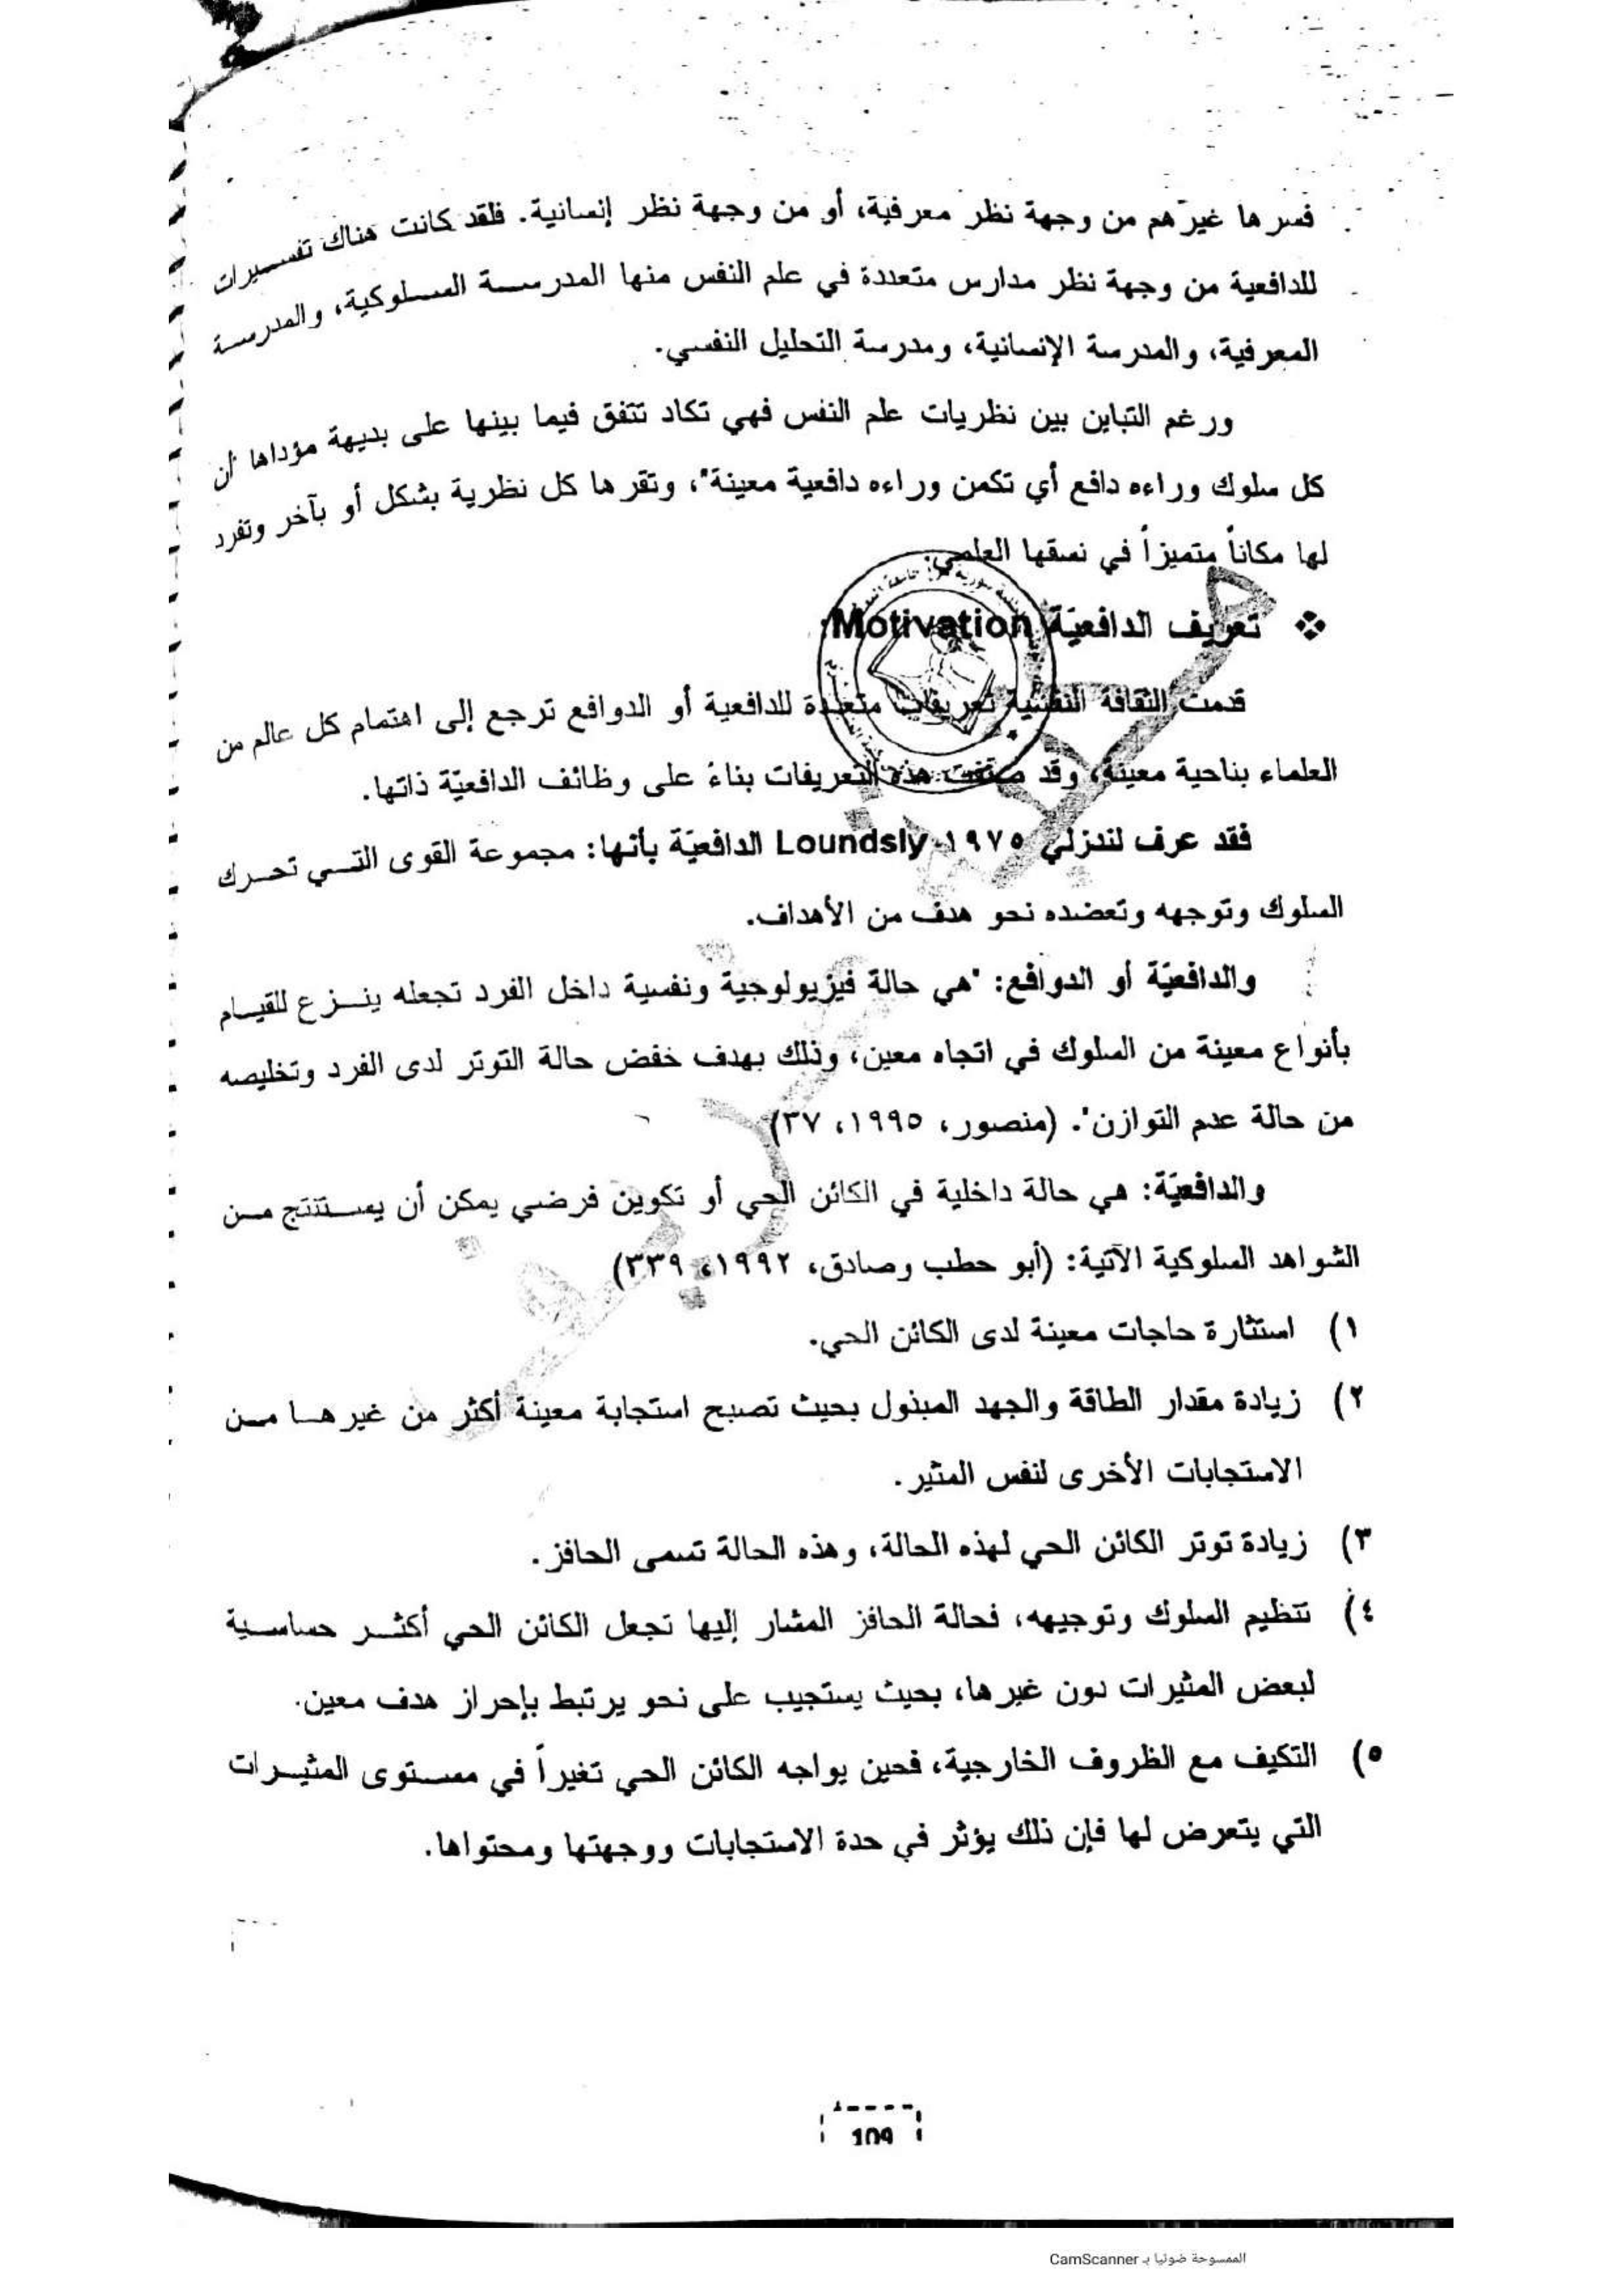 فسرها غيرهم من وجهة نظر معرفية، أو من وجهة نظر إنسانية. فلقد كانت هناك تفسيرات
للدافعية من وجهة نظر مدارس متعددة في علم النفس منها المدرسة السلوكية، والمدرسة
المعرفية، والمدرسة الإنسانية، ومدرسة التحليل النفسي.
ورغم التباين بين نظريات علم النفس فهي تكاد تتفق فيما بينها على بديهة مؤداها أن
كل سلوك وراءه دافع أي تكمن وراءه دافعية معينة"، وتقرها كل نظرية بشكل أو بآخر وتفرد
لها مكاناً متميزاً في نسقها العلمي.
❖ تعريف الدافعيّة Motivation:
قدمت الثقافة النفسية تعريفات متعددة للدافعية أو الدوافع ترجع إلى اهتمام كل عالم من
العلماء بناحية معينة، وقد صنفت هذه التعريفات بناءً على وظائف الدافعيّة ذاتها.
فقد عرف لندزلي Loundsly ١٩٧٥ الدافعيّة بأنها: مجموعة القوى التي تحرك
السلوك وتوجهه وتعضده نحو هدف من الأهداف.
والدافعيّة أو الدوافع: "هي حالة فيزيولوجية ونفسية داخل الفرد تجعله ينزع للقيام
بأنواع معينة من السلوك في اتجاه معين، وذلك بهدف خفض حالة التوتر لدى الفرد وتخليصه
من حالة عدم التوازن". (منصور، ١٩٩٥، ٣٧)
والدافعيّة: هي حالة داخلية في الكائن الحي أو تكوين فرضي يمكن أن يستنتج من
الشواهد السلوكية الآتية: (أبو حطب وصادق، ١٩٩٢، ٣٣٩)
١) استثارة حاجات معينة لدى الكائن الحي.
٢) زيادة مقدار الطاقة والجهد المبذول بحيث تصبح استجابة معينة أكثر من غيرها من
الاستجابات الأخرى لنفس المثير.
٣) زيادة توتر الكائن الحي لهذه الحالة، وهذه الحالة تسمى الحافز.
٤) تنظيم السلوك وتوجيهه، فحالة الحافز المشار إليها تجعل الكائن الحي أكثر حساسية
لبعض المثيرات دون غيرها، بحيث يستجيب على نحو يرتبط بإحراز هدف معين.
٥) التكيف مع الظروف الخارجية، فحين يواجه الكائن الحي تغيراً في مستوى المثيرات
التي يتعرض لها فإن ذلك يؤثر في حدة الاستجابات ووجهتها ومحتواها.
109
الممسوحة ضوئيا بـ CamScanner